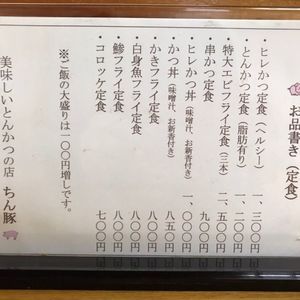 お品書き(定食)
・ヒレかつ定食(ヘルシー) 一、三〇〇円
・とんかつ定食(脂肪有り) 一、二〇〇円
・特大エビフライ定食(三本) 一、五〇〇円
・串かつ定食 九〇〇円
・ヒレかつ丼(味噌汁、お新香付き) 一、〇〇〇円
・かつ丼(味噌汁、お新香付き) 八五〇円
・かきフライ定食 八〇〇円
・白身魚フライ定食 八〇〇円
・鯵フライ定食 八〇〇円
・コロッケ定食 七〇〇円
※ご飯の大盛りは一〇〇円増しです。
美味しいとんかつの店 ちん豚